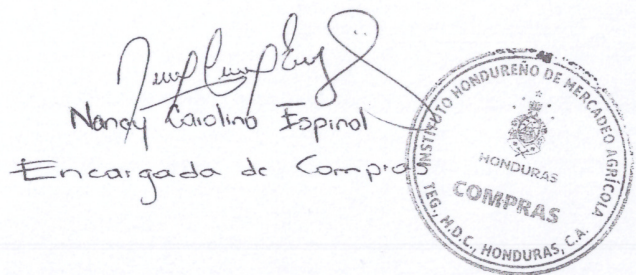 Nancy Carolina Espinal
Encargada de Compras
INSTITUTO HONDUREÑO DE MERCADEO AGRÍCOLA
HONDURAS
COMPRAS
TEG., M.D.C., HONDURAS, C.A.